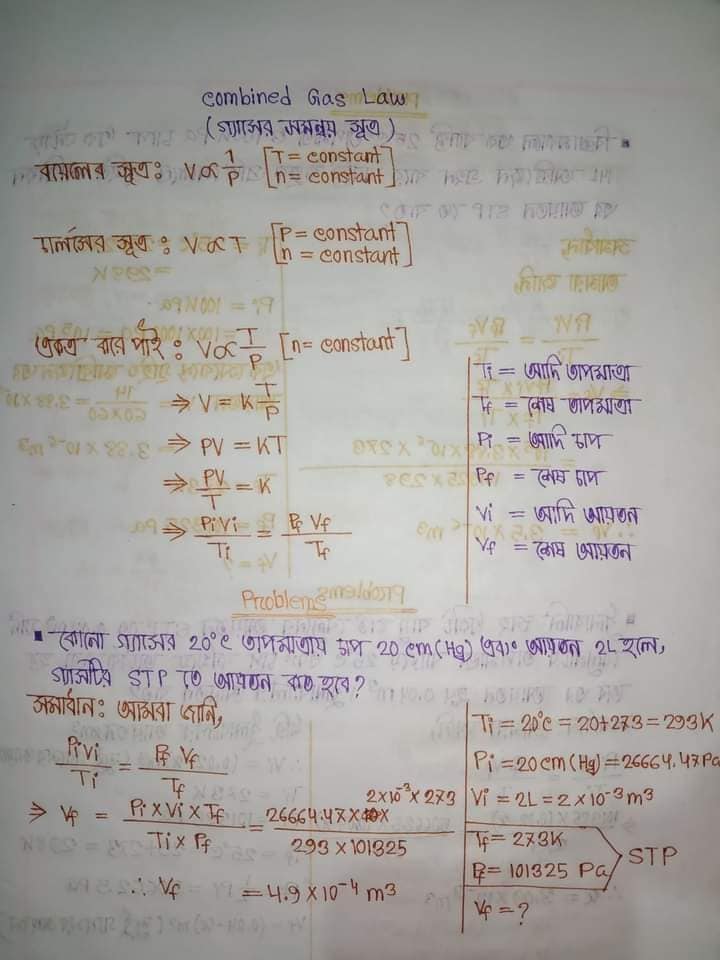 Combined Gas Law
(গ্যাসের সমন্বয় সূত্র)
বয়েলের সূত্র: V∝1/P [T = constant n = constant]
চার্লসের সূত্র: V∝T [P = constant n = constant]
একত্র করে পাই: V∝T/P [n = constant]
⇒ V = K T/P
⇒ PV = KT
⇒ PV/T = K
⇒ PiVi/Ti = Pf Vf/Tf
Ti = আদি তাপমাত্রা
Tf = শেষ তাপমাত্রা
Pi = আদি চাপ
Pf = শেষ চাপ
Vi = আদি আয়তন
Vf = শেষ আয়তন
Problems
▪ কোনো গ্যাসের 20°C তাপমাত্রায় চাপ 20 cm(Hg) এবং আয়তন 2L হলে,
গ্যাসটির STP তে আয়তন কত হবে?
সমাধান: আমরা জানি,
PiVi/Ti = Pf Vf/Tf
⇒ Vf = Pi × Vi × Tf/Ti × Pf = 26664.47 × 2×10⁻³ × 273/293 × 101325
∴ Vf = 4.9 × 10⁻⁴ m³
Ti = 20°C = 20+273 = 293K
Pi = 20 cm (Hg) = 26664.47 Pa
Vi = 2L = 2 × 10⁻³ m³
Tf = 273K
Pf = 101325 Pa
STP
Vf = ?